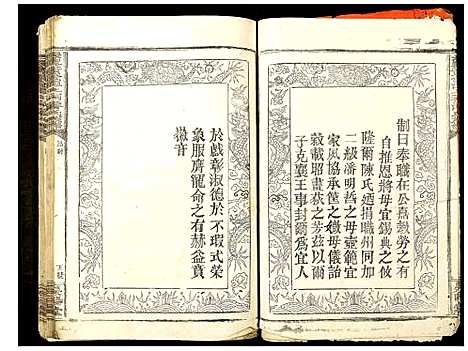 制曰奉職在公嘉教勞之有
自推恩將母宜錫典之攸
隆爾陳氏迺捐職州同加
二級潘明哲之母壼範宜
家風協承筐之媺母儀詒
穀載昭畫荻之芳茲以爾
子克襄王事封爾爲宜人
於戲彰淑德於不瑕式榮
象服膺寵命之有赫益賁
徽音